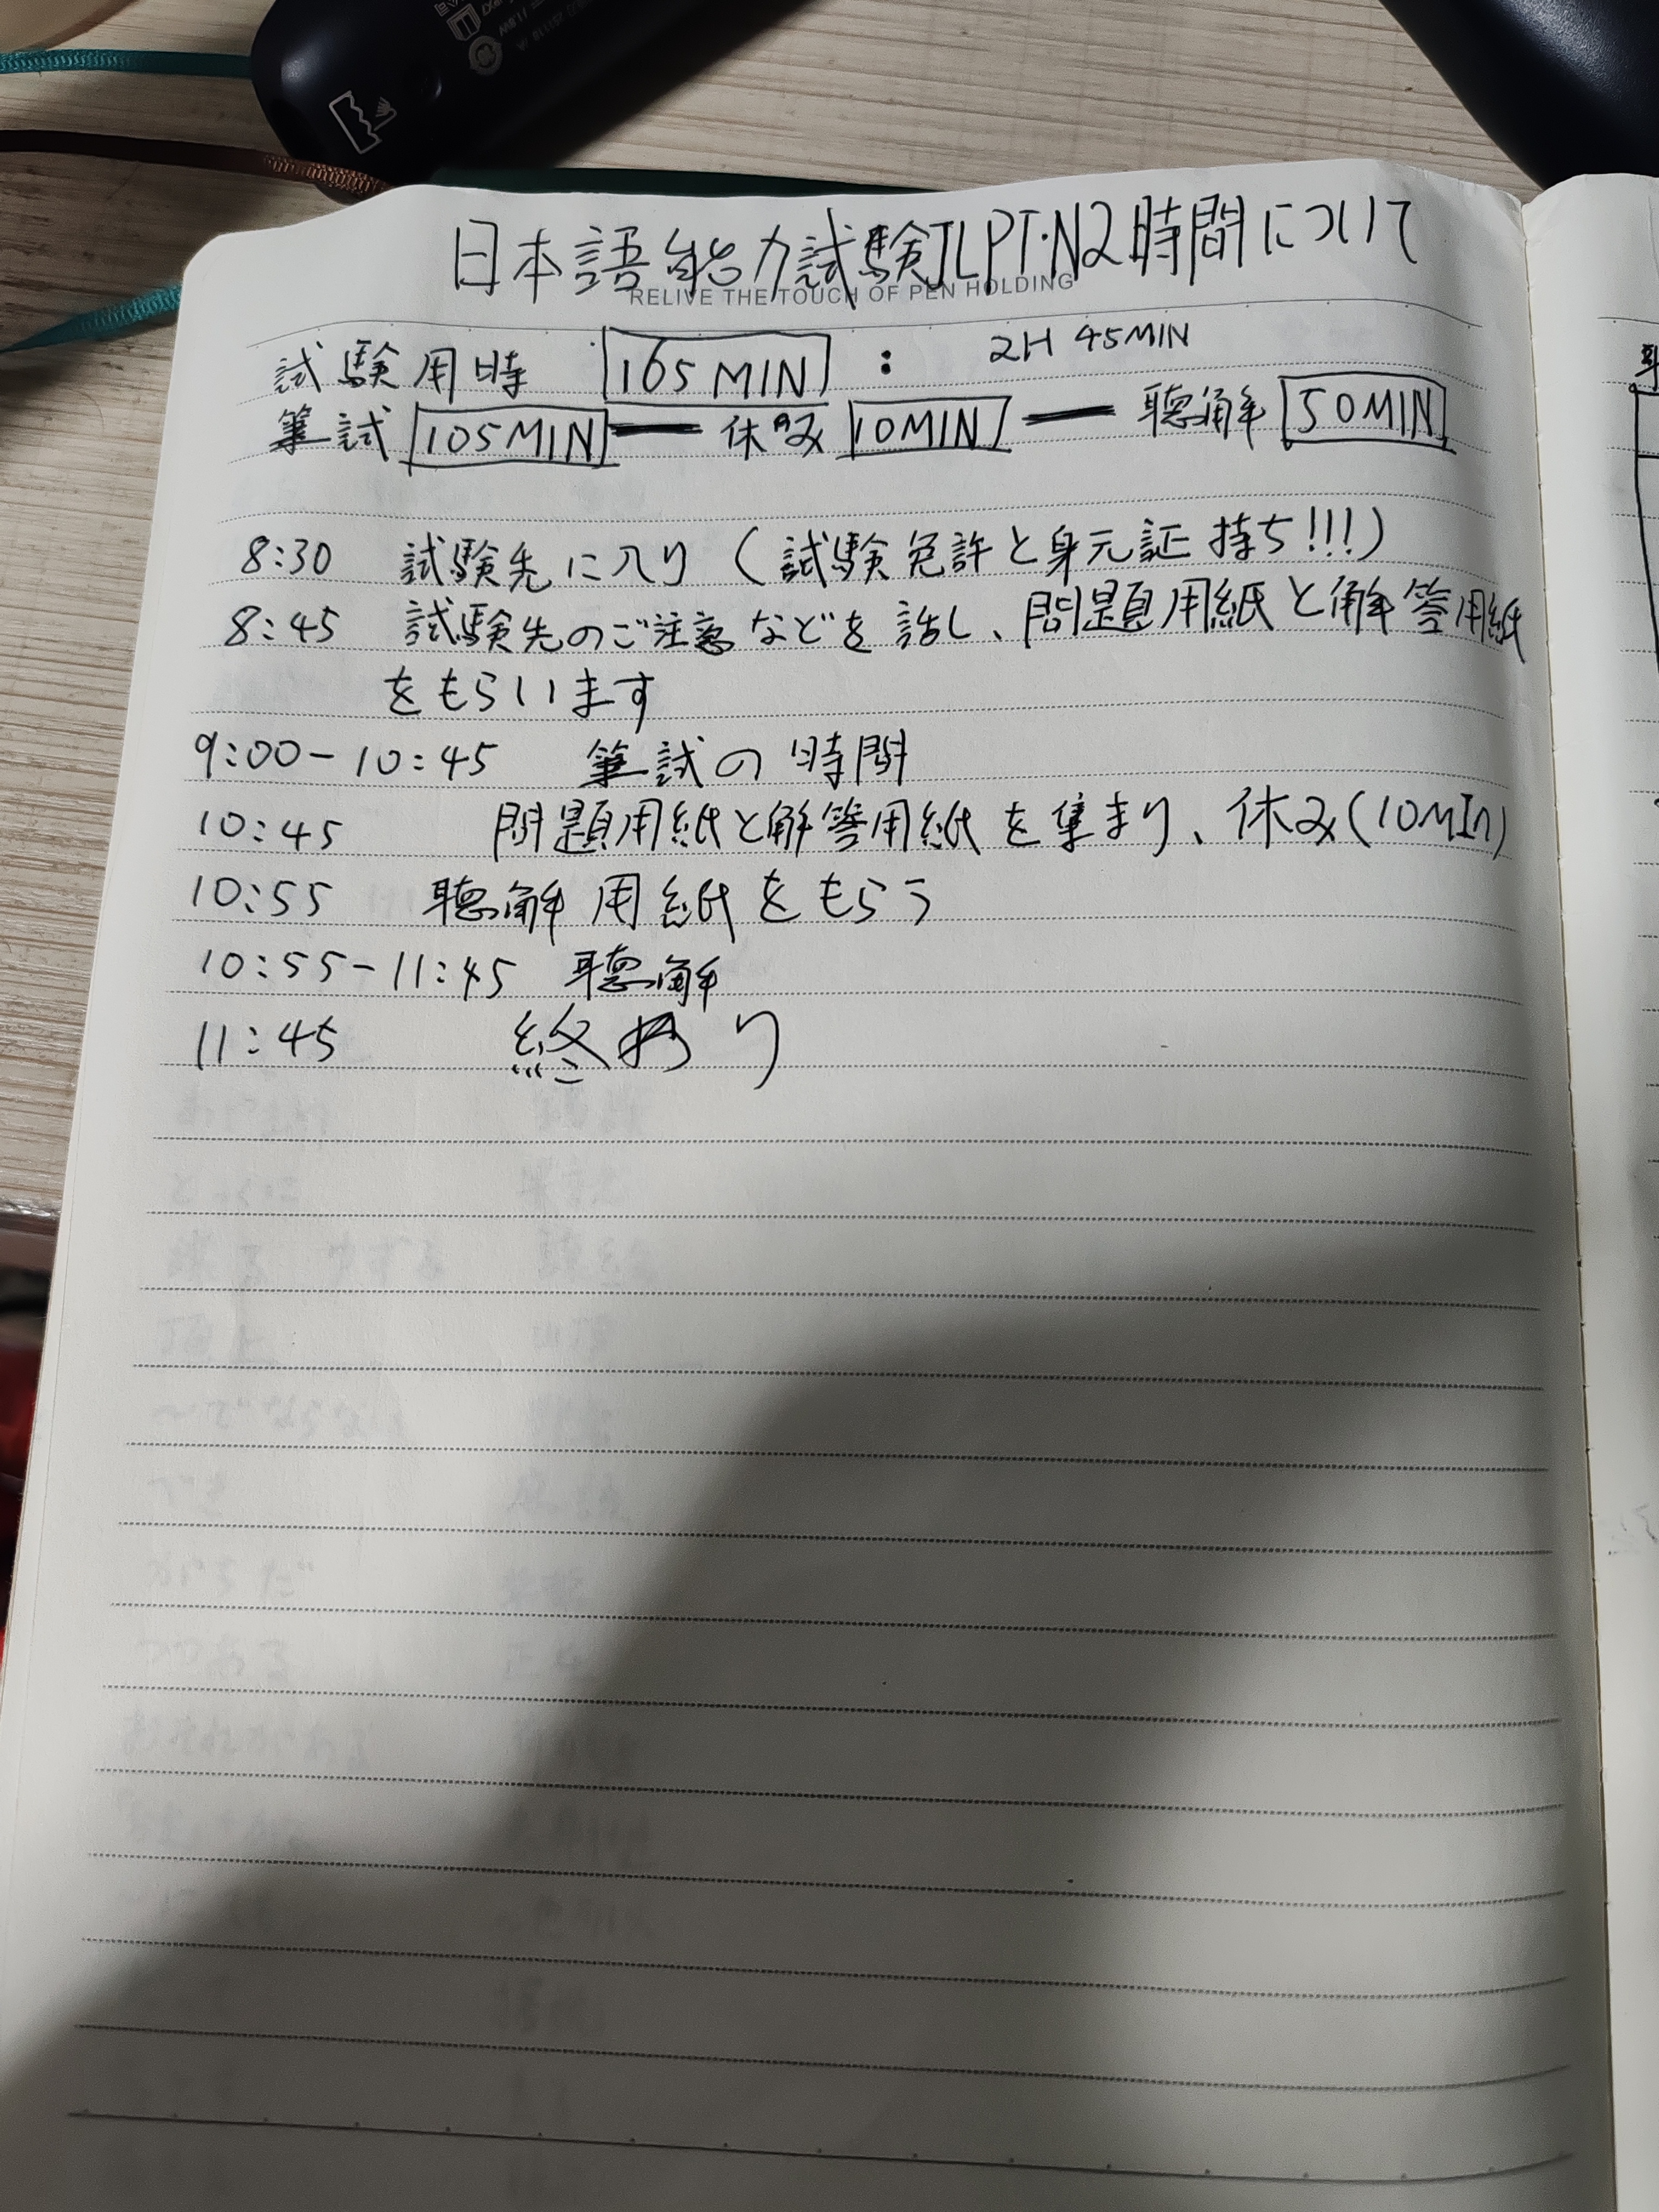 日本語能力試験JLPT・N2時間について
RELIVE THE TOUCH OF PEN HOLDING
試験用時 165MIN : 2H 45MIN
筆試 105MIN — 休み 10MIN — 聴解 50MIN
8:30 試験先に入り(試験免許と身元証持ち!!!)
8:45 試験先のご注意などを話し、問題用紙と解答用紙
をもらいます
9:00-10:45 筆試の時間
10:45 問題用紙と解答用紙を集まり、休み(10MIn)
10:55 聴解用紙をもらう
10:55-11:45 聴解
11:45 終わり